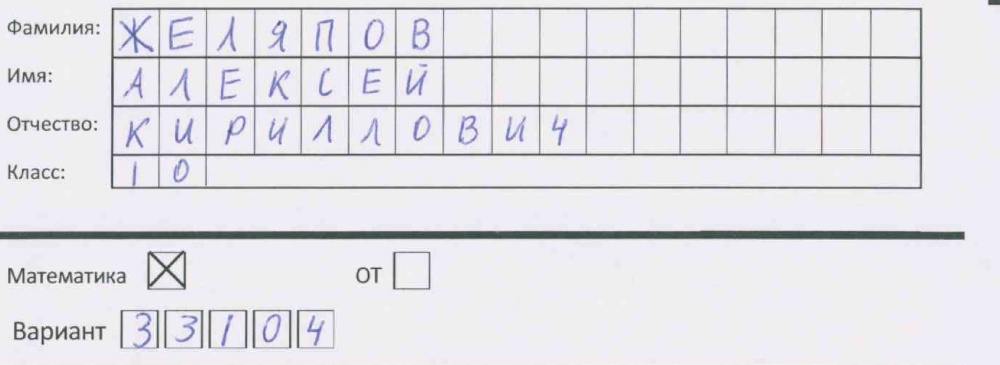 Фамилия: ЖЕЛЯПОВ
Имя: АЛЕКСЕЙ
Отчество: КИРИЛЛОВИЧ
Класс: 10
Математика ☒ ОТ ☐
Вариант 33104